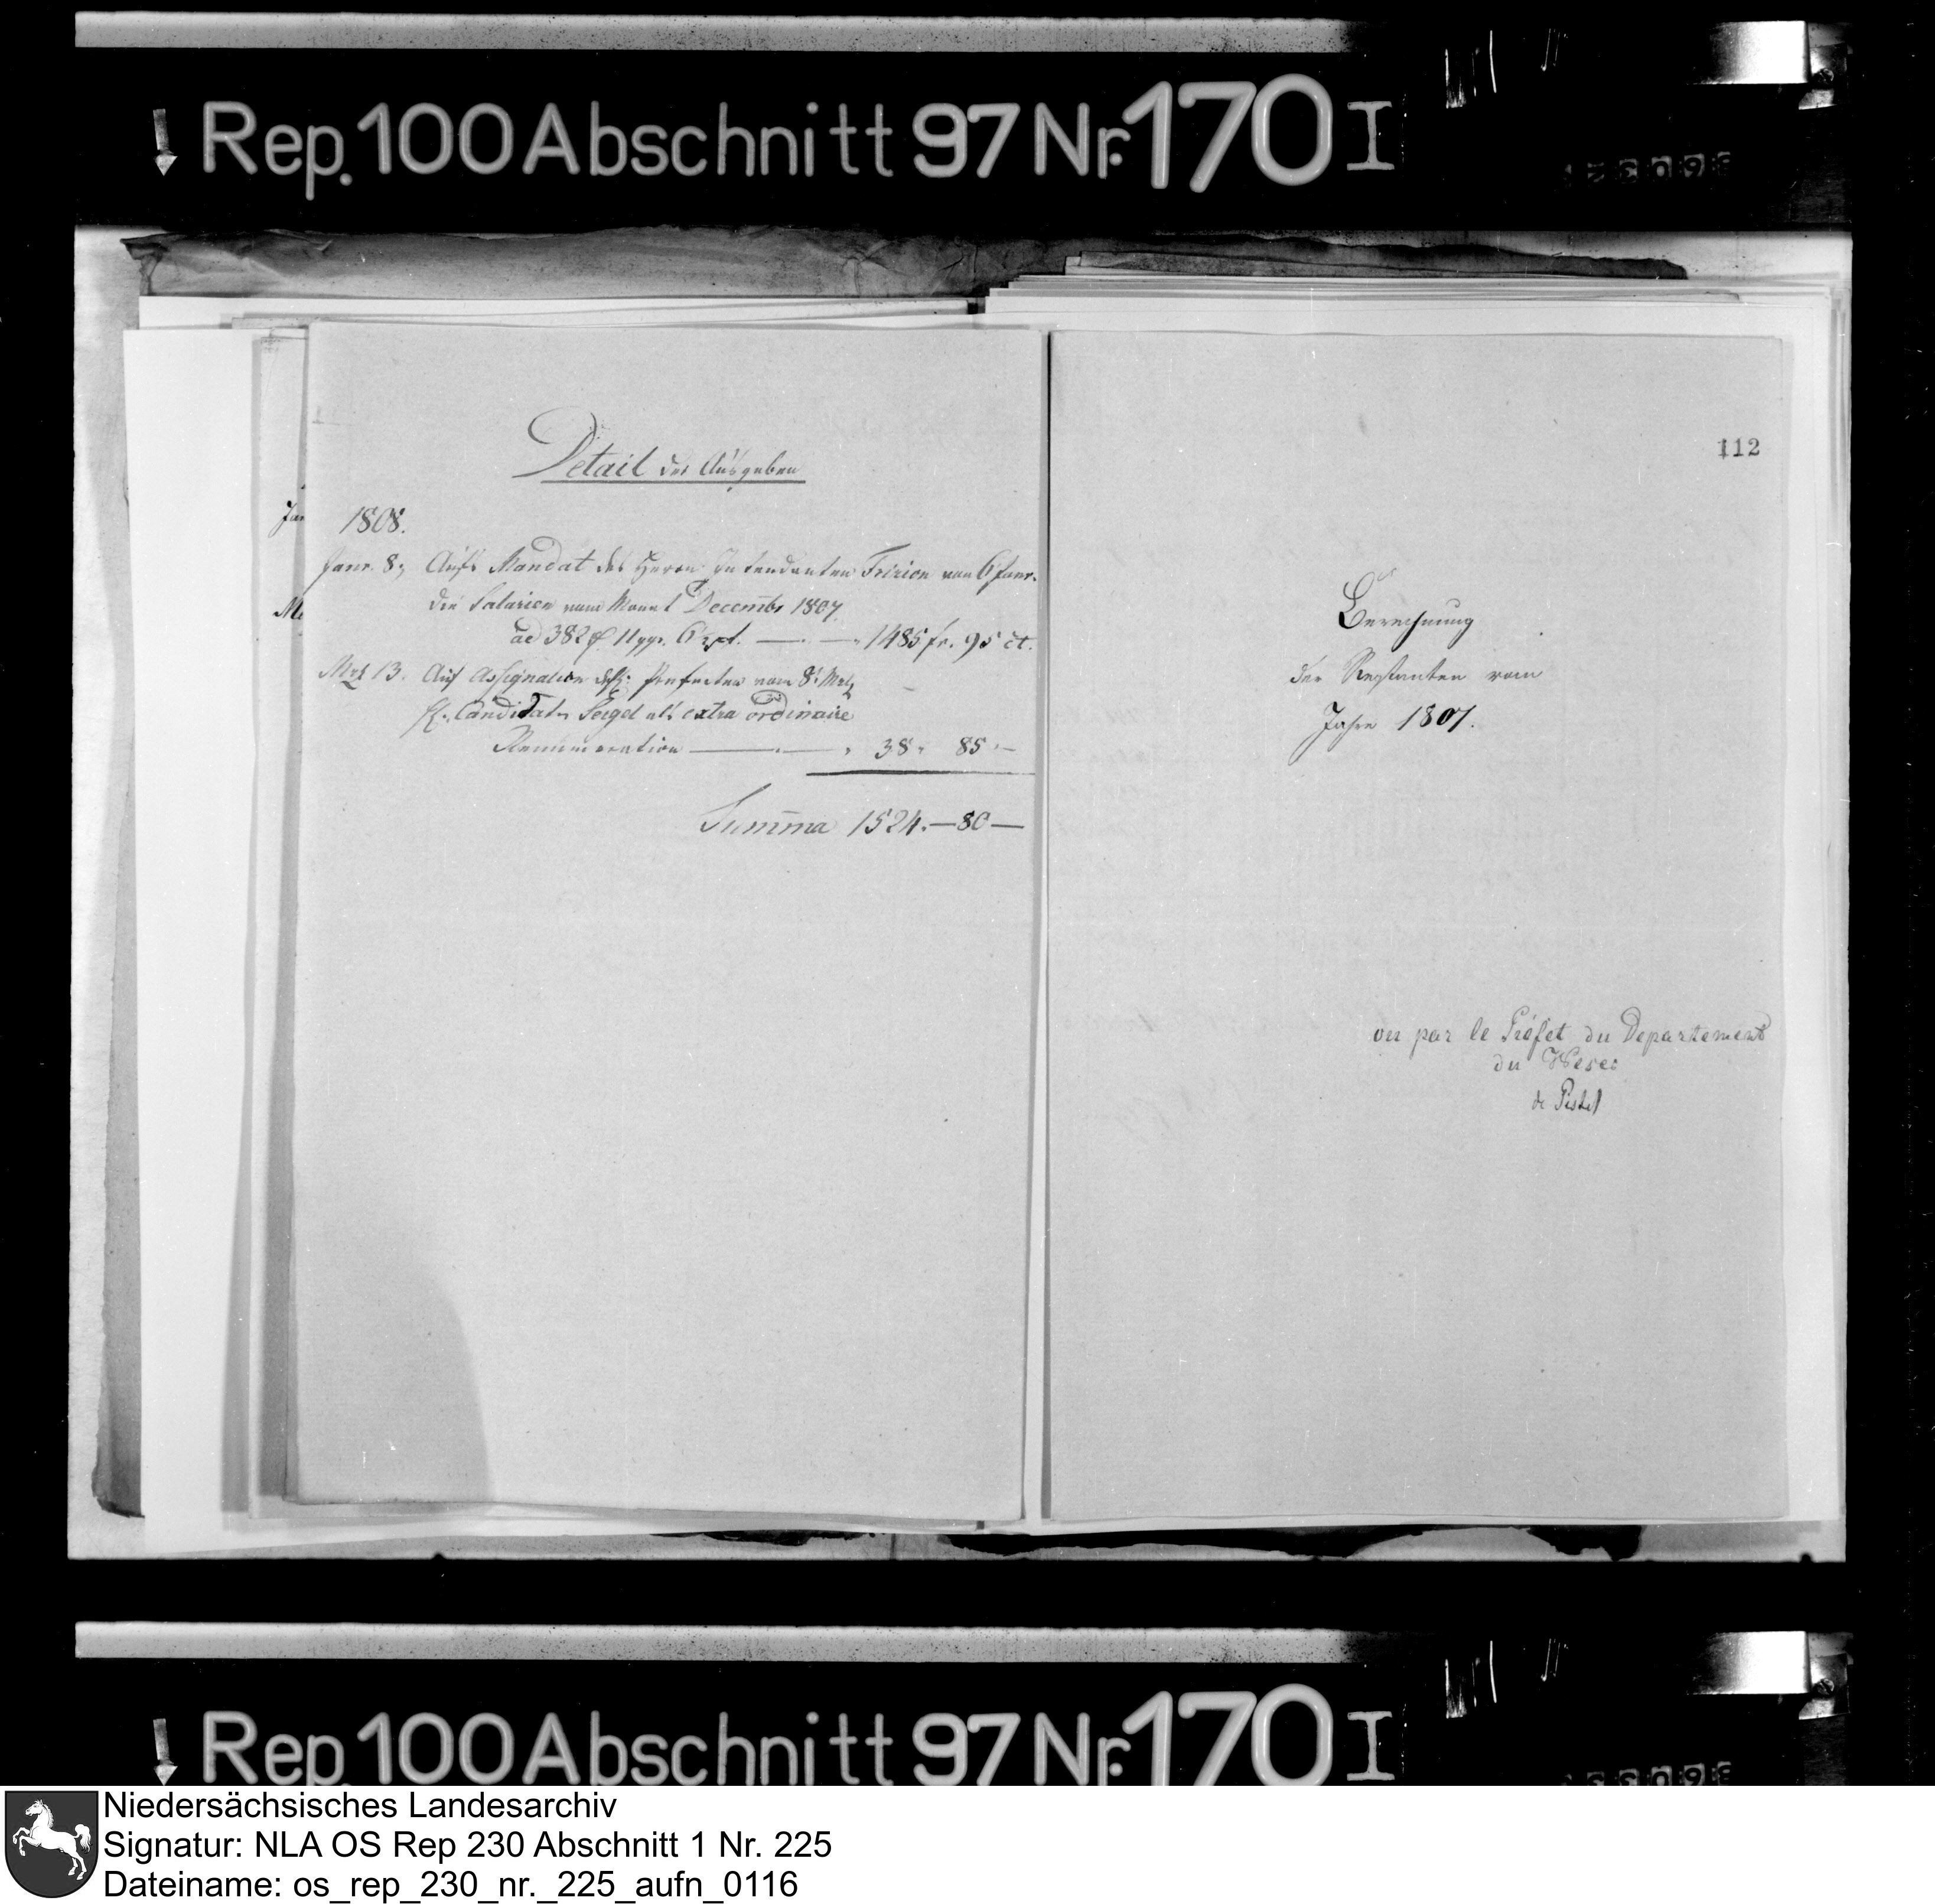 Rep. 100 Abschnitt 97 Nr. 170 I
Detail der Ausgaben
1808.
Janr. 8, Aufs Mandat des Herrn Intendanten Tririon vom 6 Janr.
die Salarien vom Monat Decembr 1807.
ad 382 11 ggr. 6 1485 fr. 95 ct.
Mrz 13. Auf Assignation des Präfecten vom 8t Mrz
H. Candidat Seigel als extra ordinaire
Remuneration 38 " 85 —
Summa 1524.—80—
Jan
Me
112
Berechnung
der Restanten vom
Jahre 1807.
vu par le Préfet du Departement
du Weser
de Pestel
Rep. 100 Abschnitt 97 Nr. 170 I
Niedersächsisches Landesarchiv
Signatur: NLA OS Rep 230 Abschnitt 1 Nr. 225
Dateiname: os_rep_230_nr._225_aufn_0116